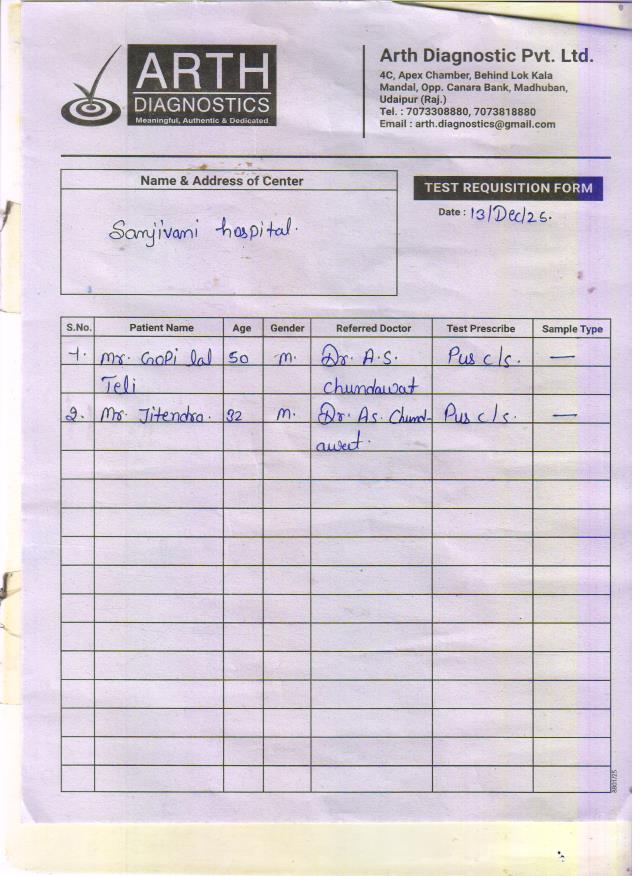 ARTH
DIAGNOSTICS
Meaningful, Authentic & Dedicated
Arth Diagnostic Pvt. Ltd.
4C, Apex Chamber, Behind Lok Kala
Mandal, Opp. Canara Bank, Madhuban,
Udaipur (Raj.)
Tel. : 7073308880, 7073818880
Email : arth.diagnostics@gmail.com
Name & Address of Center
Sanjivani hospital.
TEST REQUISITION FORM
Date : 13/Dec/25.
S.No. Patient Name Age Gender Referred Doctor Test Prescribe Sample Type
1. Mr. Gopi lal 50 M. Dr. A.S. Pus c/s. —
Teli chundawat
2. Mr. Jitendra. 32 M. Dr. As. Chund- Pus c/s. —
awat.
8801/25